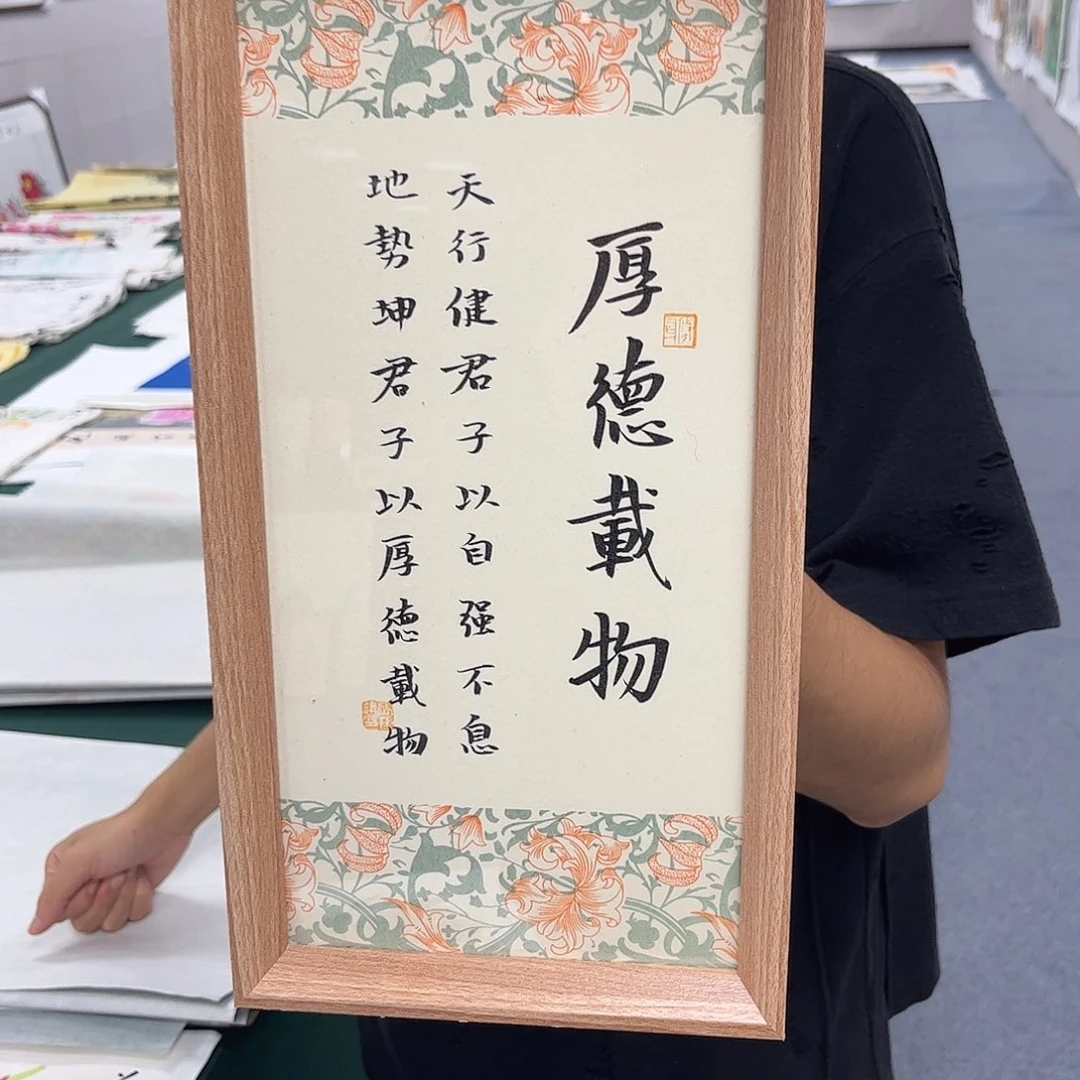 厚德載物
天行健君子以自强不息
地勢坤君子以厚德載物